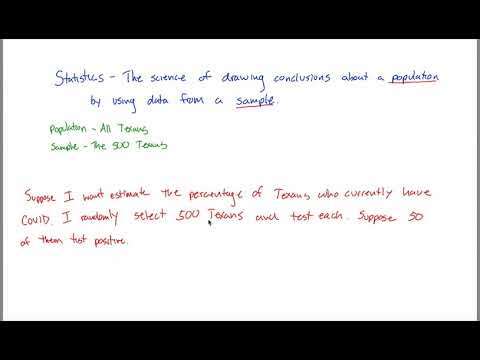 Statistics - The science of drawing conclusions about a population
by using data from a sample.
Population - All Texans
Sample - The 500 Texans
Suppose I want estimate the percentage of Texans who currently have
COVID. I randomly select 500 Texans and test each. Suppose 50
of them test positive.